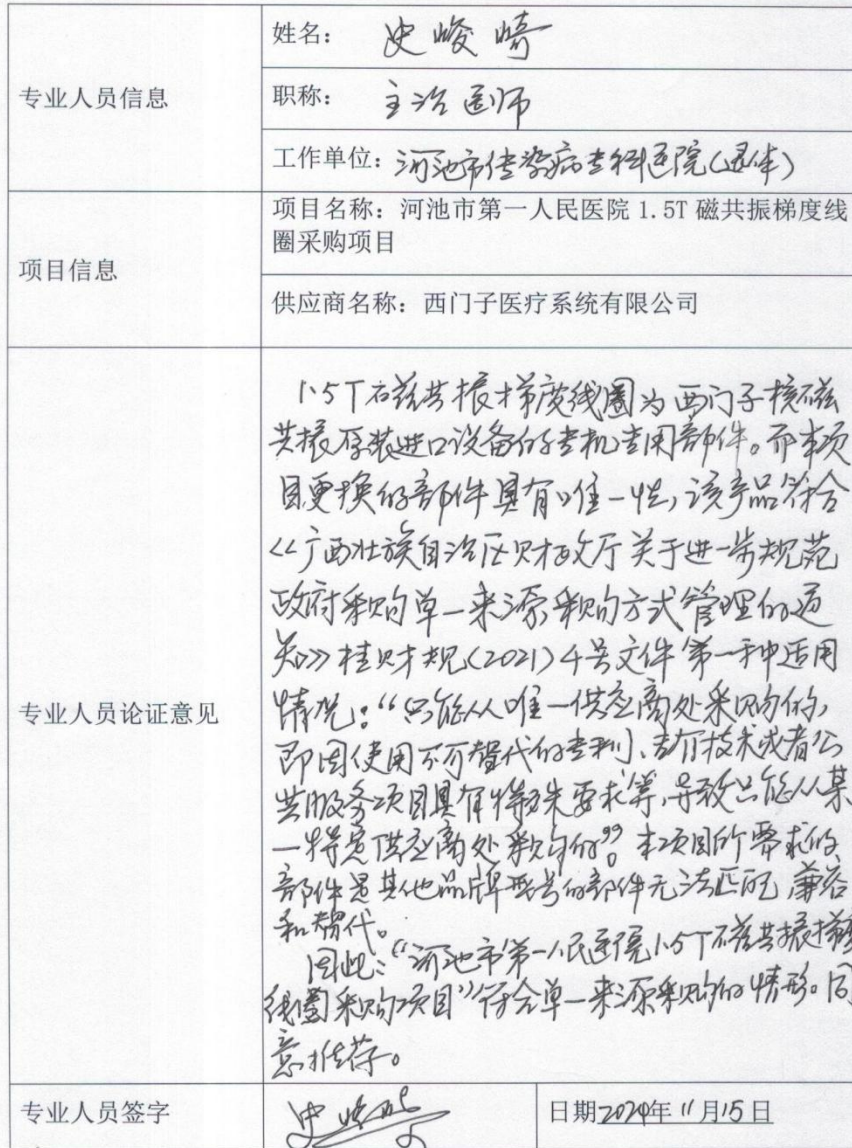 姓名： 史峻崎
专业人员信息
职称： 主治医师
工作单位：河池市传染病专科医院（退休）
项目名称：河池市第一人民医院 1.5T 磁共振梯度线
圈采购项目
项目信息
供应商名称：西门子医疗系统有限公司
1.5T磁共振梯度线圈为西门子核磁
共振原装进口设备的专机专用部件。而本项
目更换的部件具有唯一性，该产品符合
《广西壮族自治区财政厅关于进一步规范
政府采购单一来源采购方式管理的通
知》桂财规（2021）4号文件第一种适用
专业人员论证意见
情况：“只能从唯一供应商处采购的，
即因使用不可替代的专利、专有技术或者公
共服务项目具有特殊要求等，导致只能从某
一特定供应商处采购的”。本项目所要求的
部件是其他品牌型号的部件无法匹配 兼容
和替代。
因此：“河池市第一人民医院1.5T磁共振梯度
线圈采购项目”符合单一来源采购的情形。同
意推荐。
专业人员签字
日期2024年11月15日